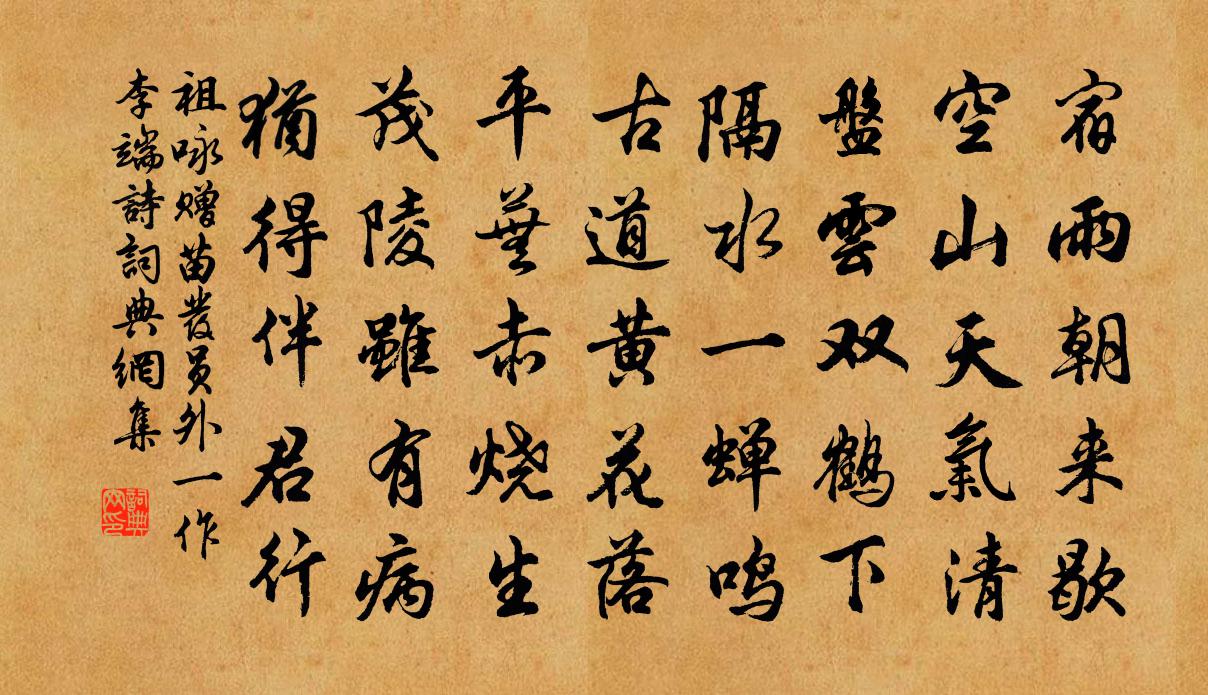 宿雨朝来歇
空山天氣清
盤雲双鶴下
隔水一蝉鸣
古道黄花落
平蕪赤烧生
茂陵雖有病
猶得伴君行
祖咏赠苗發员外一作
李端詩詞典網集
詞典网印